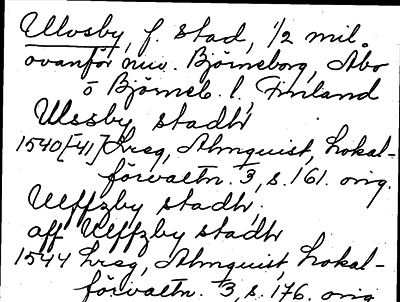 Ulvsby, f. stad, 1/2 mil
ovanför nuv. Björneborg, Åbo
o Björneb. l, Finland
Ulssby stadh
1540[-41] Lrsg, Almquist, Lokal-
förvaltn. 3, s. 161. orig.
Ulffzby stadh,
aff Ulffzby stadh
1544 Lrsg, Almquist, Lokal-
förvaltn. 3, s. 176. orig